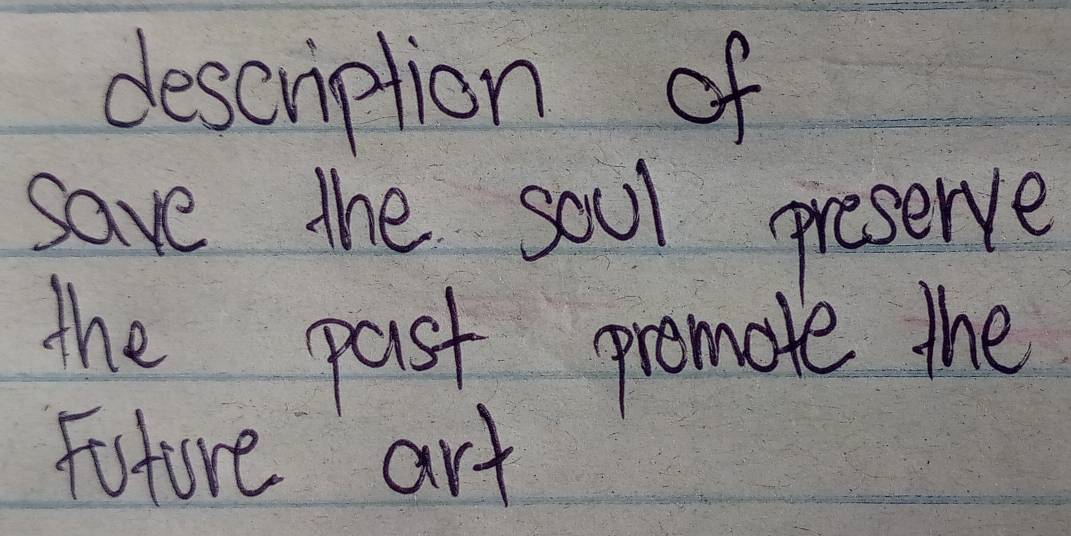 description of
save the soul preserve
the past promote the
Future art